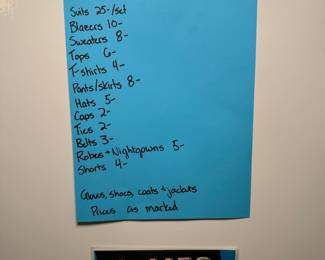 Suits 25-/set
Blazers 10-
Sweaters 8-
Tops 6-
T-shirts 4-
Pants/skirts 8-
Hats 5-
Caps 2-
Ties 2-
Belts 3-
Robes + Nightgowns 5-
Shorts 4-
Gloves, shoes, coats + jackets
Prices as marked